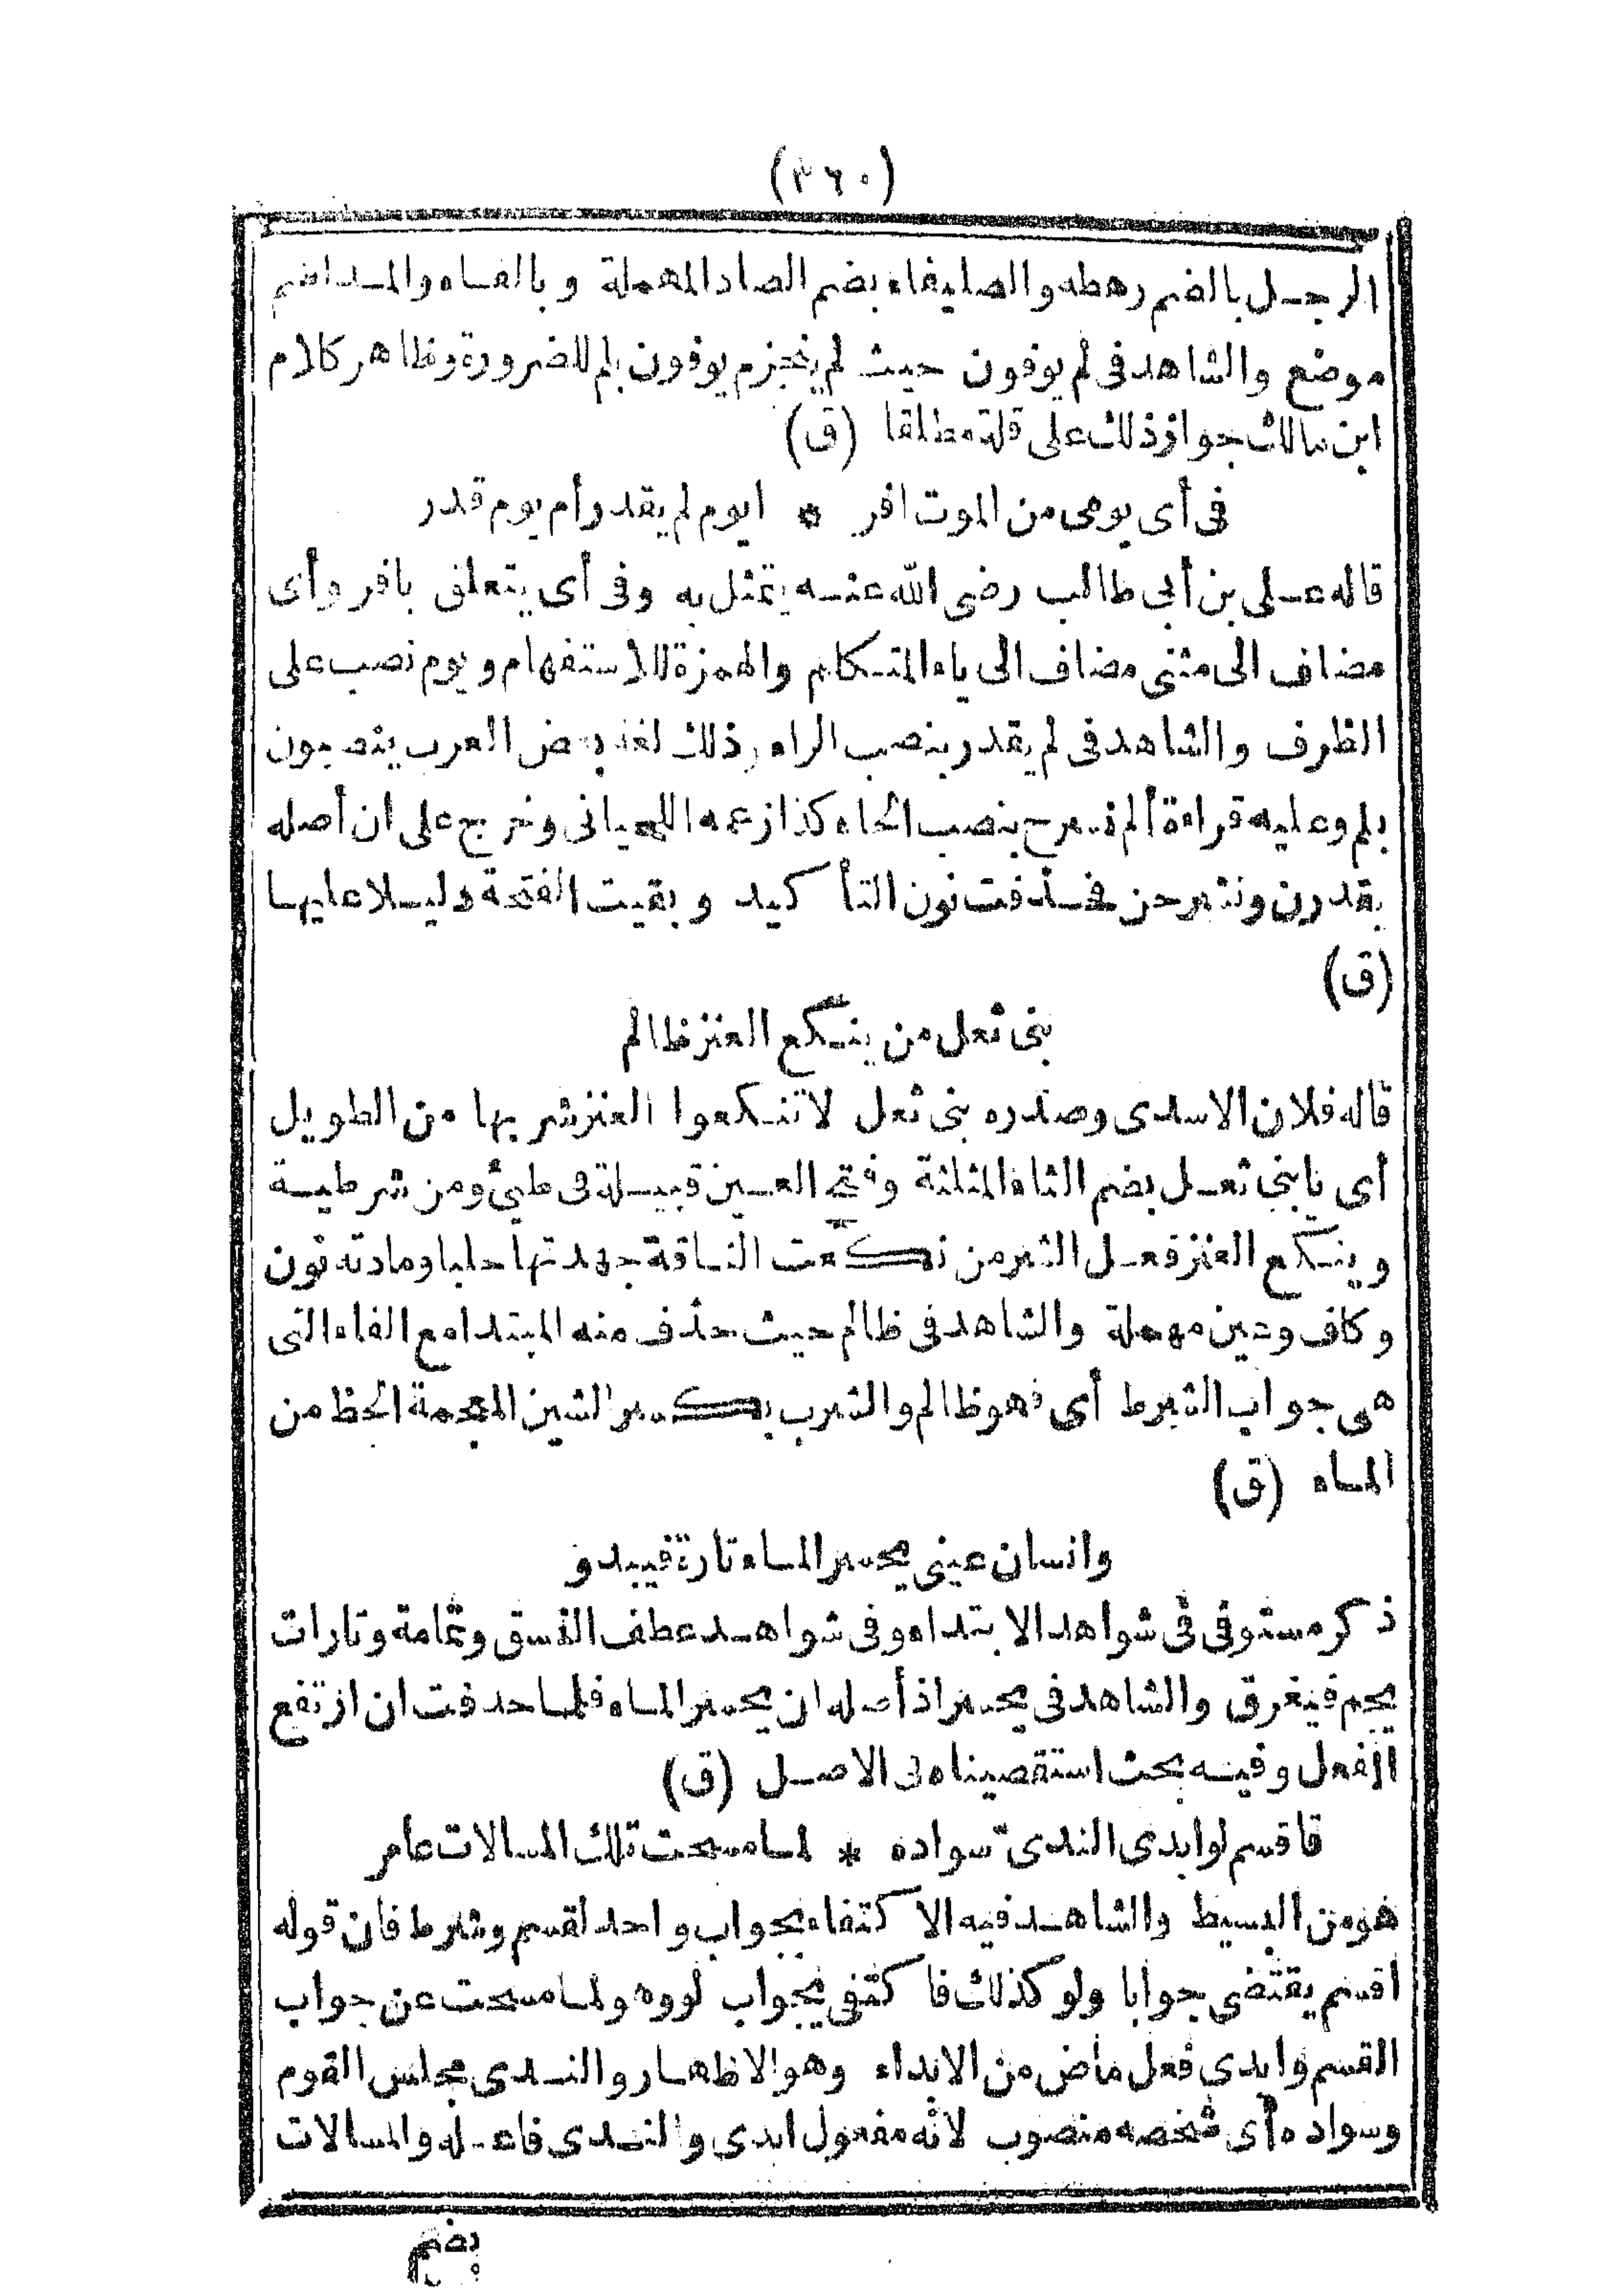 (٣٦٠)
الرجل بالضم رهطه والصليفاء بضم الصاد المهملة وبالفاء والمد اسم
موضع والشاهد في لم يوفون حيث لم ينجزم يوفون بلم للضرورة وظاهر كلام
ابن مالك جواز ذلك على قلة مطلقا (ق)
في أى يومى من الموت افر * ايوم لم يقدر أم يوم قدر
قاله على بن أبى طالب رضى الله عنه يتمثل به وفى أى يتعلق بافر وأى
مضاف الى مثنى مضاف الى ياء المتكلم والهمزة للاستفهام ويوم نصب على
الظرف والشاهد فى لم يقدر بنصب الراء وذلك لغة بعض العرب ينصبون
بلم وعليه قراءة ألم نشرح بنصب الحاء كذا زعمه اللحيانى وخرج على ان أصله
يقدرن ونشرحن فحذفت نون التأكيد وبقيت الفتحة دليلا عليها
(ق)
بنى ثعل من ينكع العنز ظالم
قاله فلان الاسدى وصدره بنى ثعل لا تنكعوا العنز شربها من الطويل
أى يا بنى ثعل بضم الثاء المثلثة وفتح العين قبيلة فى طيئ ومن شرطية
وينكع العنز فعل الشرمن نكعت الناقة جهدتها حلبا ومادته نون
وكاف وعين مهملة والشاهد فى ظالم حيث حذف منه المبتدا مع الفاء التى
هى جواب الشرط أى فهو ظالم والشرب بكسر الشين المعجمة الحظ من
الماء (ق)
وانسان عينى يحسر الماء تارة فيبدو
ذكر مستوفى فى شواهد الابتداء وفى شواهد عطف النسق وتمامه وتارات
يجم فيغرق والشاهد فى يحسر اذ أصله ان يحسر الماء فلما حذفت ان ارتفع
الفعل وفيه بحث استقصيناه فى الاصل (ق)
فاقسم لو ابدى الندى سواده * لما مسحت تلك المسالات عامر
هو من البسيط والشاهد فيه الاكتفاء بجواب واحد لقسم وشرط فان قوله
اقسم يقتضى جوابا ولو كذلك فاكتفى بجواب لو وهو لما مسحت عن جواب
القسم وابدى فعل ماض من الابداء وهو الاظهار والندى مجلس القوم
وسواده أى شخصه منصوب لانه مفعول ابدى والندى فاعله والمسالات
بضم